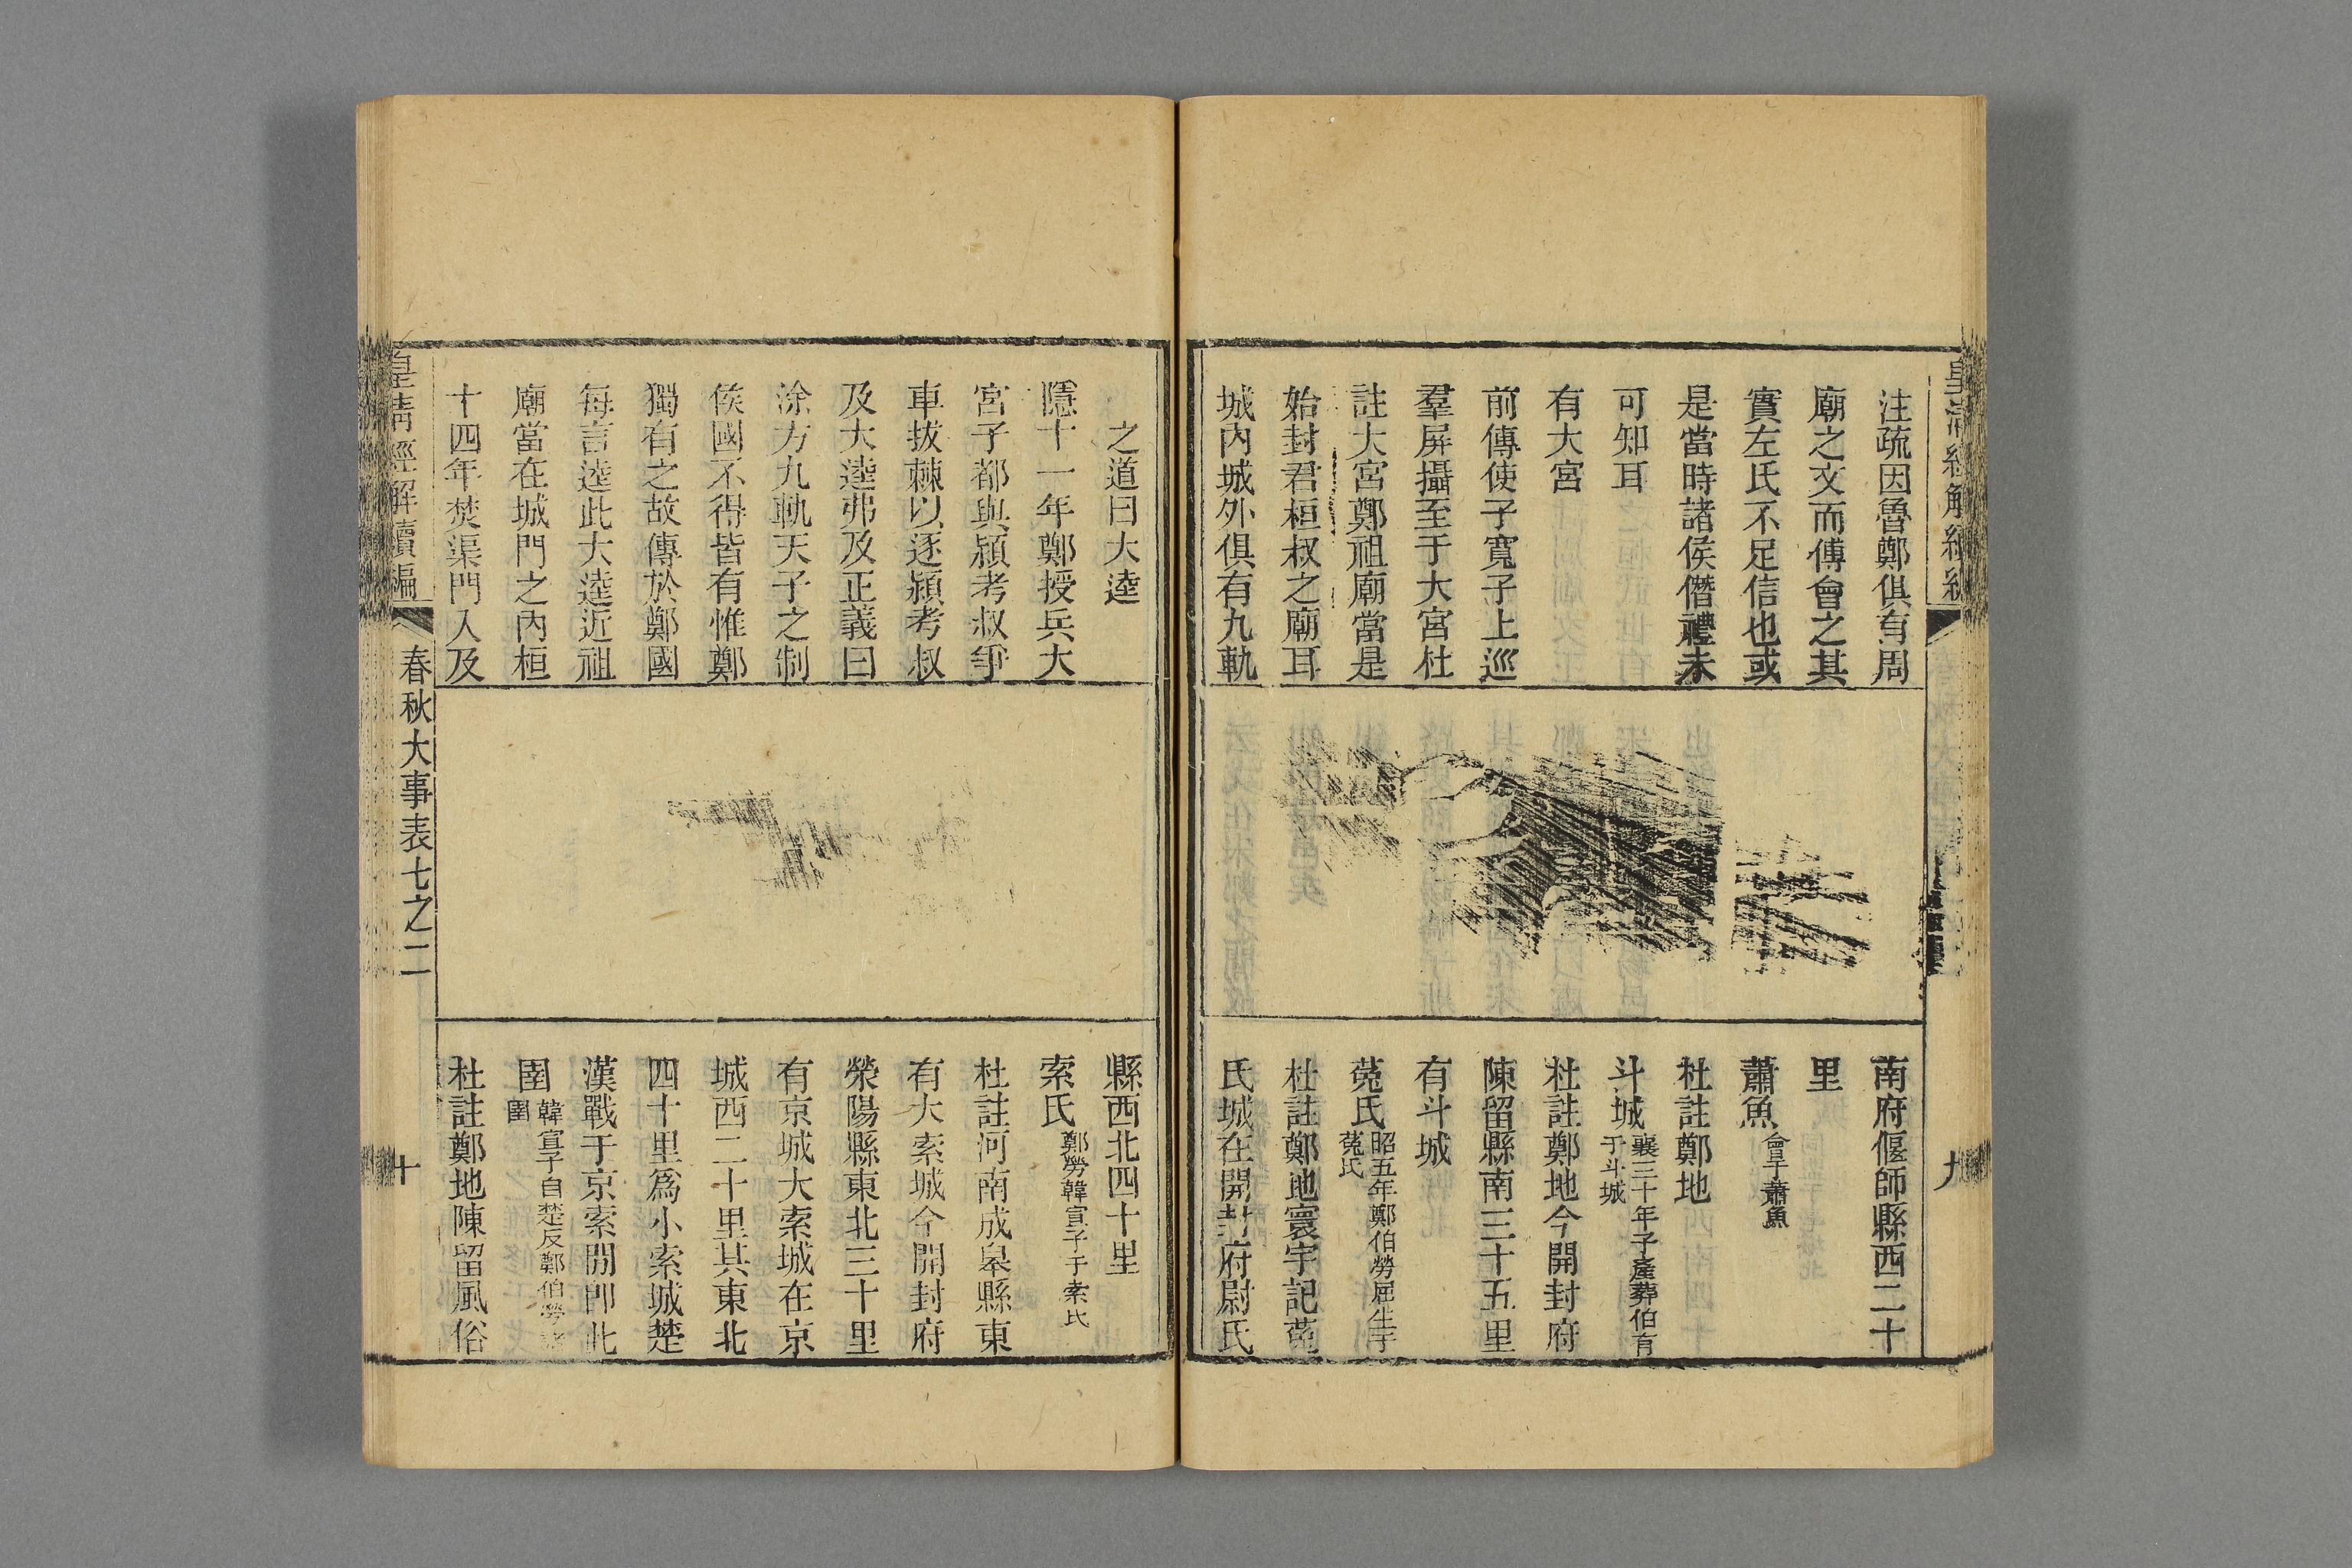 注疏因魯鄭俱有周
廟之文而傅會之其
實左氏不足信也或
是當時諸侯僭禮未
可知耳
有大宮
前傳使子寬子上巡
羣屏攝至于大宮杜
註大宮鄭祖廟當是
始封君桓叔之廟耳
城內城外俱有九軌
南府偃師縣西二十
里
蕭魚會于蕭魚
杜註鄭地
斗城襄三十年子產葬伯有
于斗城
杜註鄭地今開封府
陳留縣南三十五里
有斗城
菟氏昭五年鄭伯勞屈生于
菟氏
杜註鄭地寰宇記菟
氏城在開封府尉氏
九
之道曰大逵
隱十一年鄭授兵大
宮子都與潁考叔爭
車拔棘以逐潁考叔
及大逵弗及正義曰
涂方九軌天子之制
侯國不得皆有惟鄭
獨有之故傳於鄭國
每言逵此大逵近祖
廟當在城門之內桓
十四年焚渠門入及
縣西北四十里
索氏鄭勞韓宣子于索氏
杜註河南成皋縣東
有大索城今開封府
滎陽縣東北三十里
有京城大索城在京
城西二十里其東北
四十里為小索城楚
漢戰于京索間卽此
圉韓宣子自楚反鄭伯勞諸
圉
杜註鄭地陳留風俗
皇清經解續編
春秋大事表七之二
十